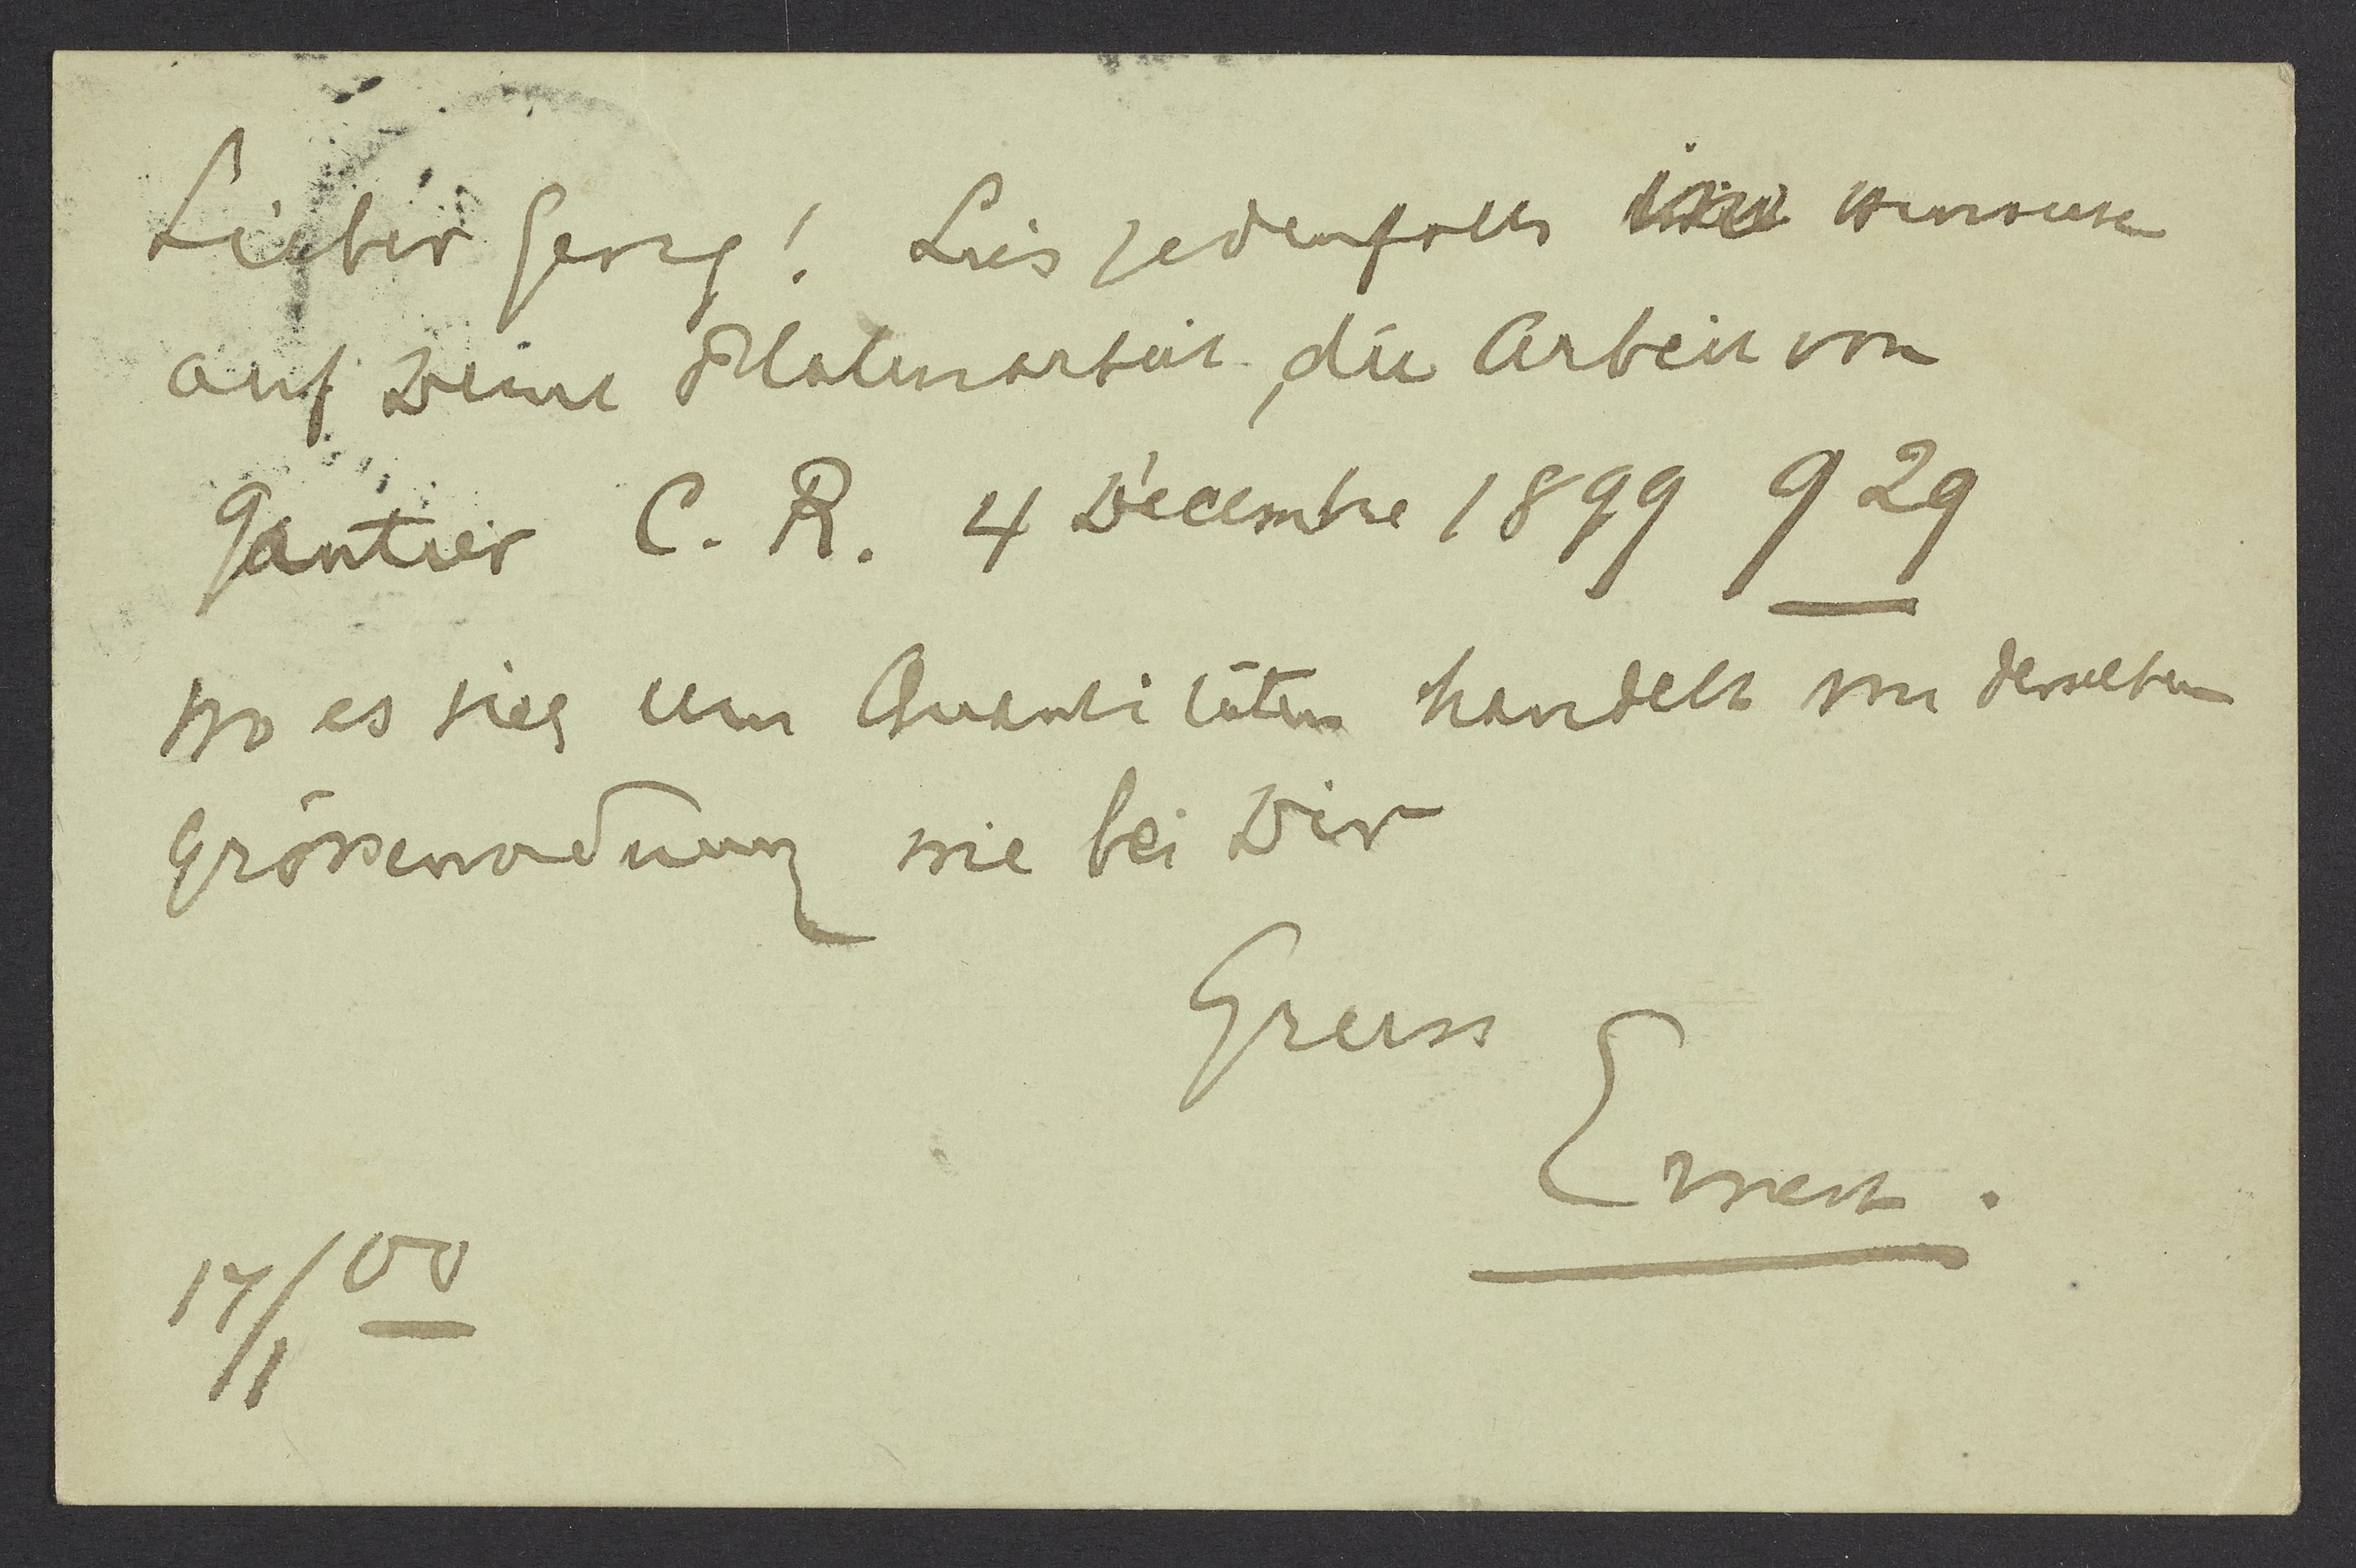 Lieber Georg! Lies jedenfalls
auf Deine Platinarbeit, die Arbeit von
Gautier C. R. 4 Decembre 1899 929
wo es sich um Quantitäten handelt von derselben
Grössenordnung wie bei Dir
Gruss
Ernest.
17/1 00